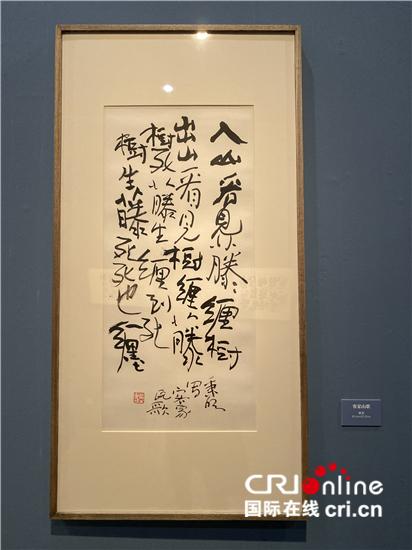 入山看見藤纏樹
出山看見樹纏藤
樹死藤生纏到死
樹生藤死死也纏
秉明
寫
客家
民歌
客家山歌
CRIonline
国际在线 cri.cn